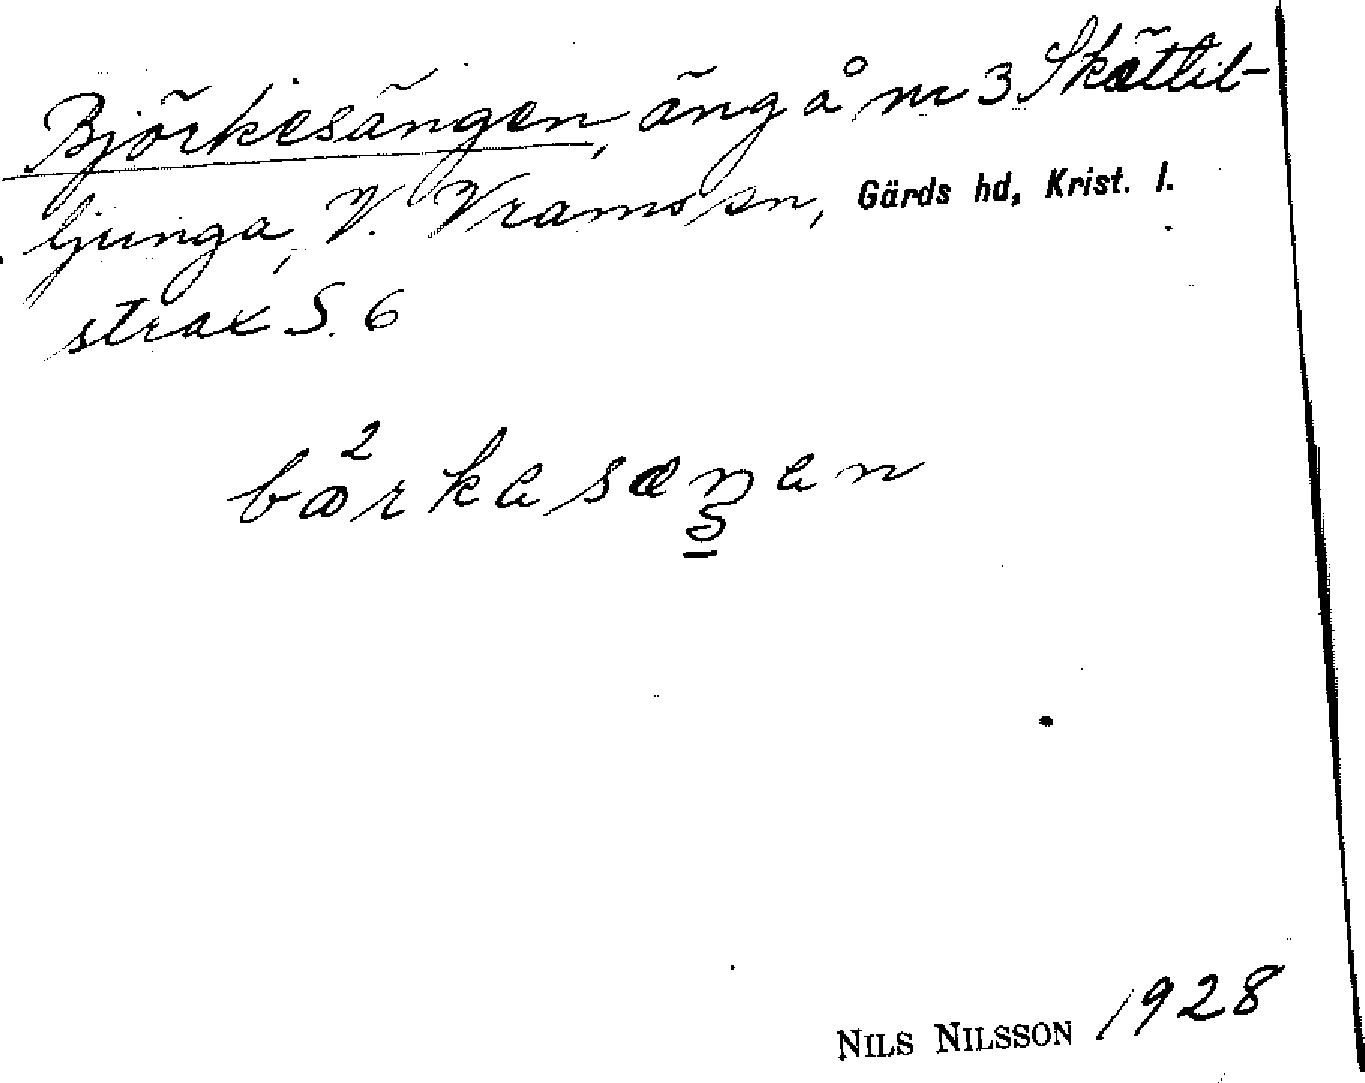 Björkesängen, äng å nr 3 Skättil-
ljunga, V. Vrams sn, Gärds hd, Krist. l.
strax S. 6
NILS NILSSON 1928